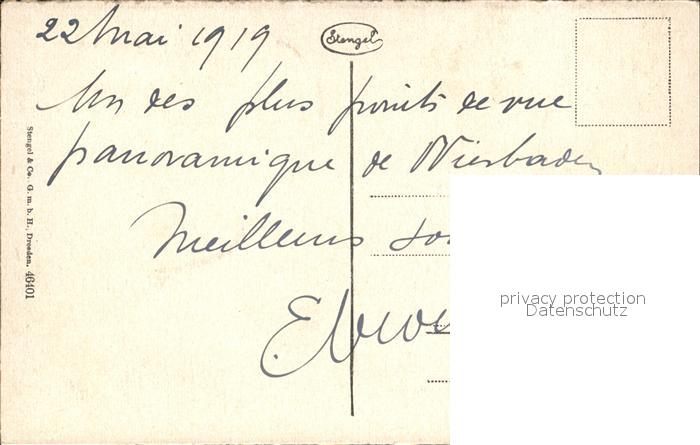 22 Mai 1919
Stengel
Un des plus points de vue
panoramique de Wiesbaden
Meilleurs
Stengel & Co., G. m. b. H., Dresden. 46401
privacy protection
Datenschutz